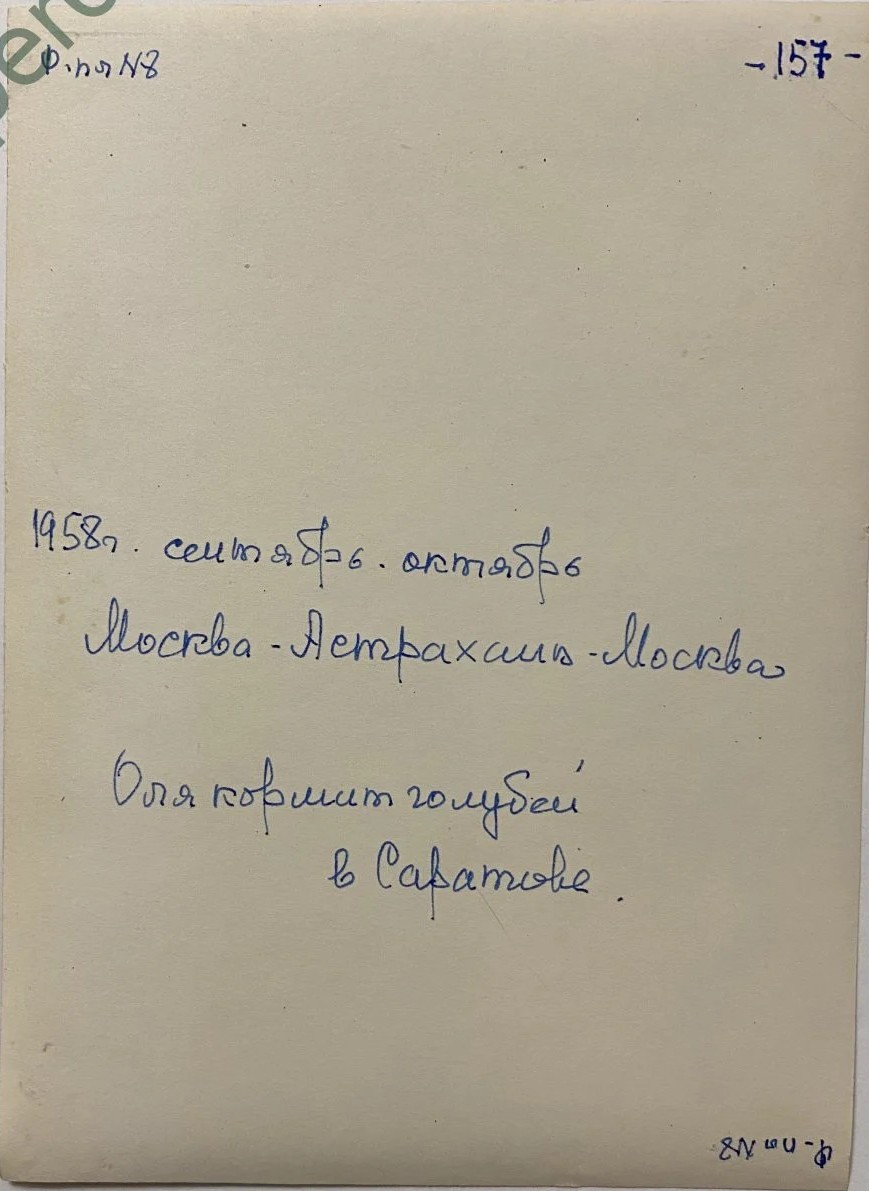 Ф-пя N8
-157-
1958г. сентябрь. октябрь
Москва-Астрахань-Москва
Оля кормит голубей
в Саратове.
Ф-пя N8